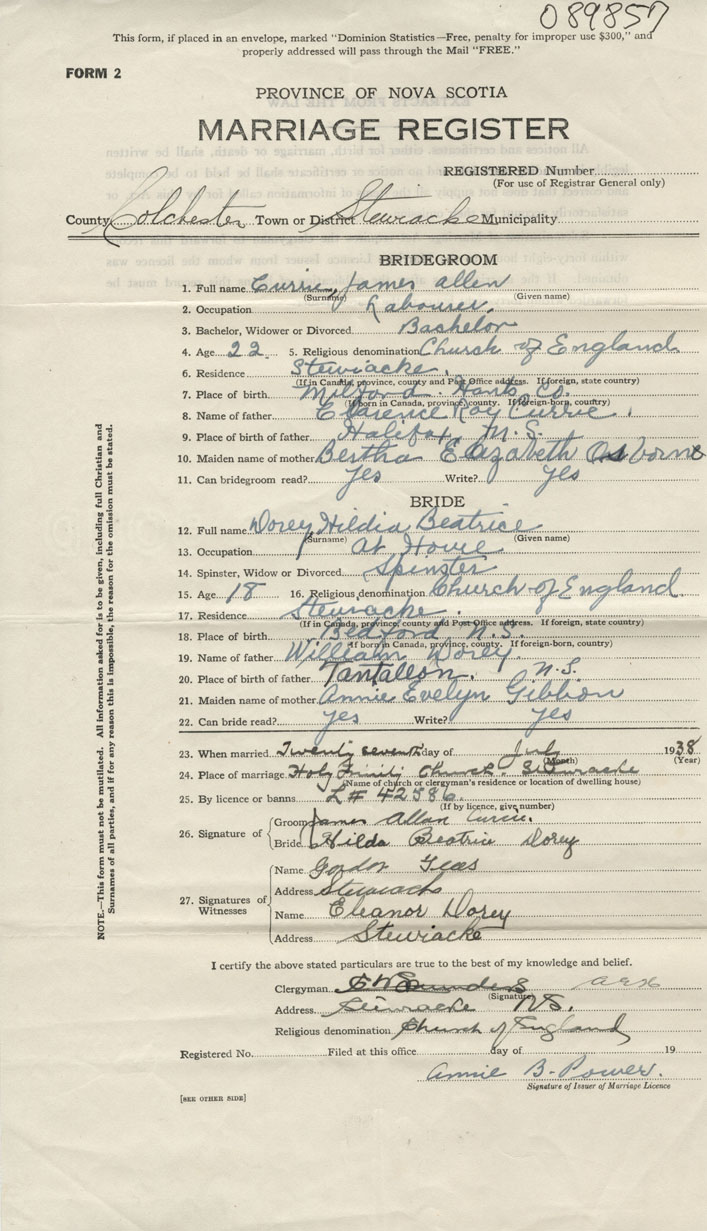 089857
This form, if placed in an envelope, marked "Dominion Statistics—Free, penalty for improper use $300," and
properly addressed will pass through the Mail "FREE."
FORM 2
PROVINCE OF NOVA SCOTIA
MARRIAGE REGISTER
REGISTERED Number
(For use of Registrar General only)
County Colchester Town or District Stewiacke Municipality
BRIDEGROOM
1. Full name Currie, James allen
(Surname) (Given name)
2. Occupation Labourer.
3. Bachelor, Widower or Divorced Bachelor
4. Age 22. 5. Religious denomination Church of England
6. Residence Stewiacke.
(If in Canada, province, county and Post Office address. If foreign, state country)
7. Place of birth Milford. Hants Co.
(If born in Canada, province, county. If foreign-born, country)
8. Name of father Clarence Roy Currie.
9. Place of birth of father Halifax, N.S.
10. Maiden name of mother Bertha Elizabeth Osborne
11. Can bridegroom read? Yes Write? Yes
BRIDE
12. Full name Dorey, Hildia Beatrice
(Surname) (Given name)
13. Occupation at Home
14. Spinster, Widow or Divorced Spinster
15. Age 18 16. Religious denomination Church of England.
17. Residence Stewiacke.
(If in Canada, province, county and Post Office address. If foreign, state country)
18. Place of birth Bedford N.S.
(If born in Canada, province, county. If foreign-born, country)
19. Name of father William Dorey.
20. Place of birth of father Tantallon. N.S.
21. Maiden name of mother Annie Evelyn Gibbion
22. Can bride read? yes Write? yes
23. When married Twenty seventh day of July 1938
(Month) (Year)
24. Place of marriage Holy Trinity Church. Stewiacke
(Name of church or clergyman's residence or location of dwelling house)
25. By licence or banns L# 42586.
(If by licence, give number)
26. Signature of Groom James Allan Currie.
Bride Hilda Beatrice Dorey
27. Signatures of Witnesses
Name Gordon
Address Stewiacke
Name Eleanor Dorey
Address Stewiacke
I certify the above stated particulars are true to the best of my knowledge and belief.
Clergyman
(Signature)
Address Stewiacke N.S.
Religious denomination Church of England
Registered No. Filed at this office day of 19
Annie B. Power.
Signature of Issuer of Marriage Licence
[SEE OTHER SIDE]
NOTE.—This form must not be mutilated. All information asked for is to be given, including full Christian and
Surnames of all parties, and if for any reason this is impossible, the reason for the omission must be stated.